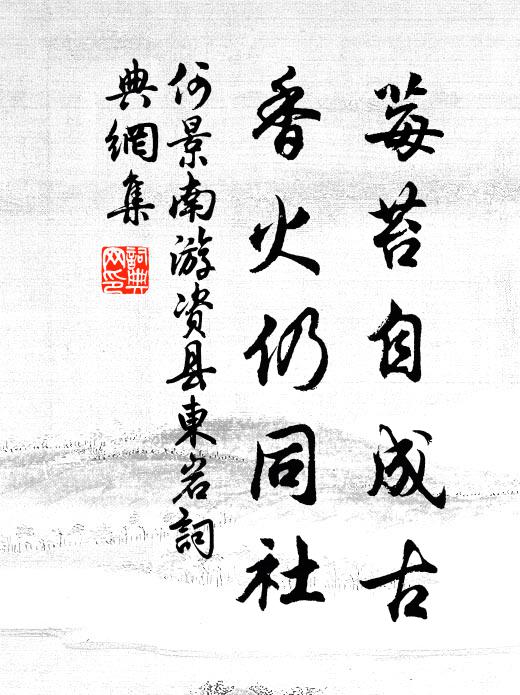 莓苔自成古
香火仍同社
何景南游资县東岩詞
典網集
詞典网印